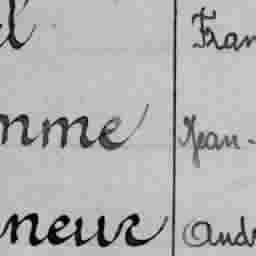 Fran
mme Jean-
neur Andr